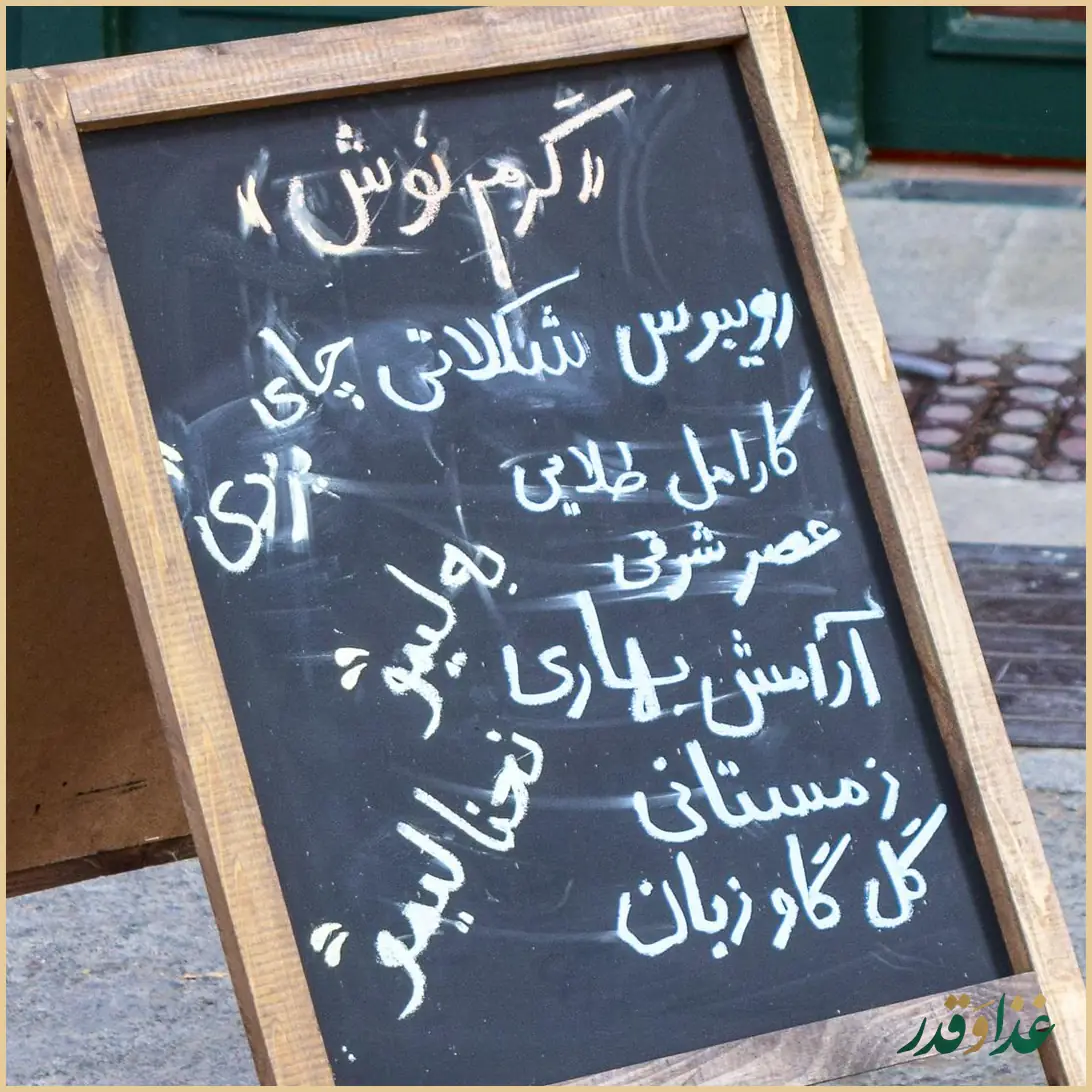 «گرم نوش»
رویبوس شکلاتی
کارامل طلایی
عصر شرقی
آرامش بهاری
زمستانی
گل گاو زبان
چای
به لیمو
نعنا لیمو
غذا و قدر